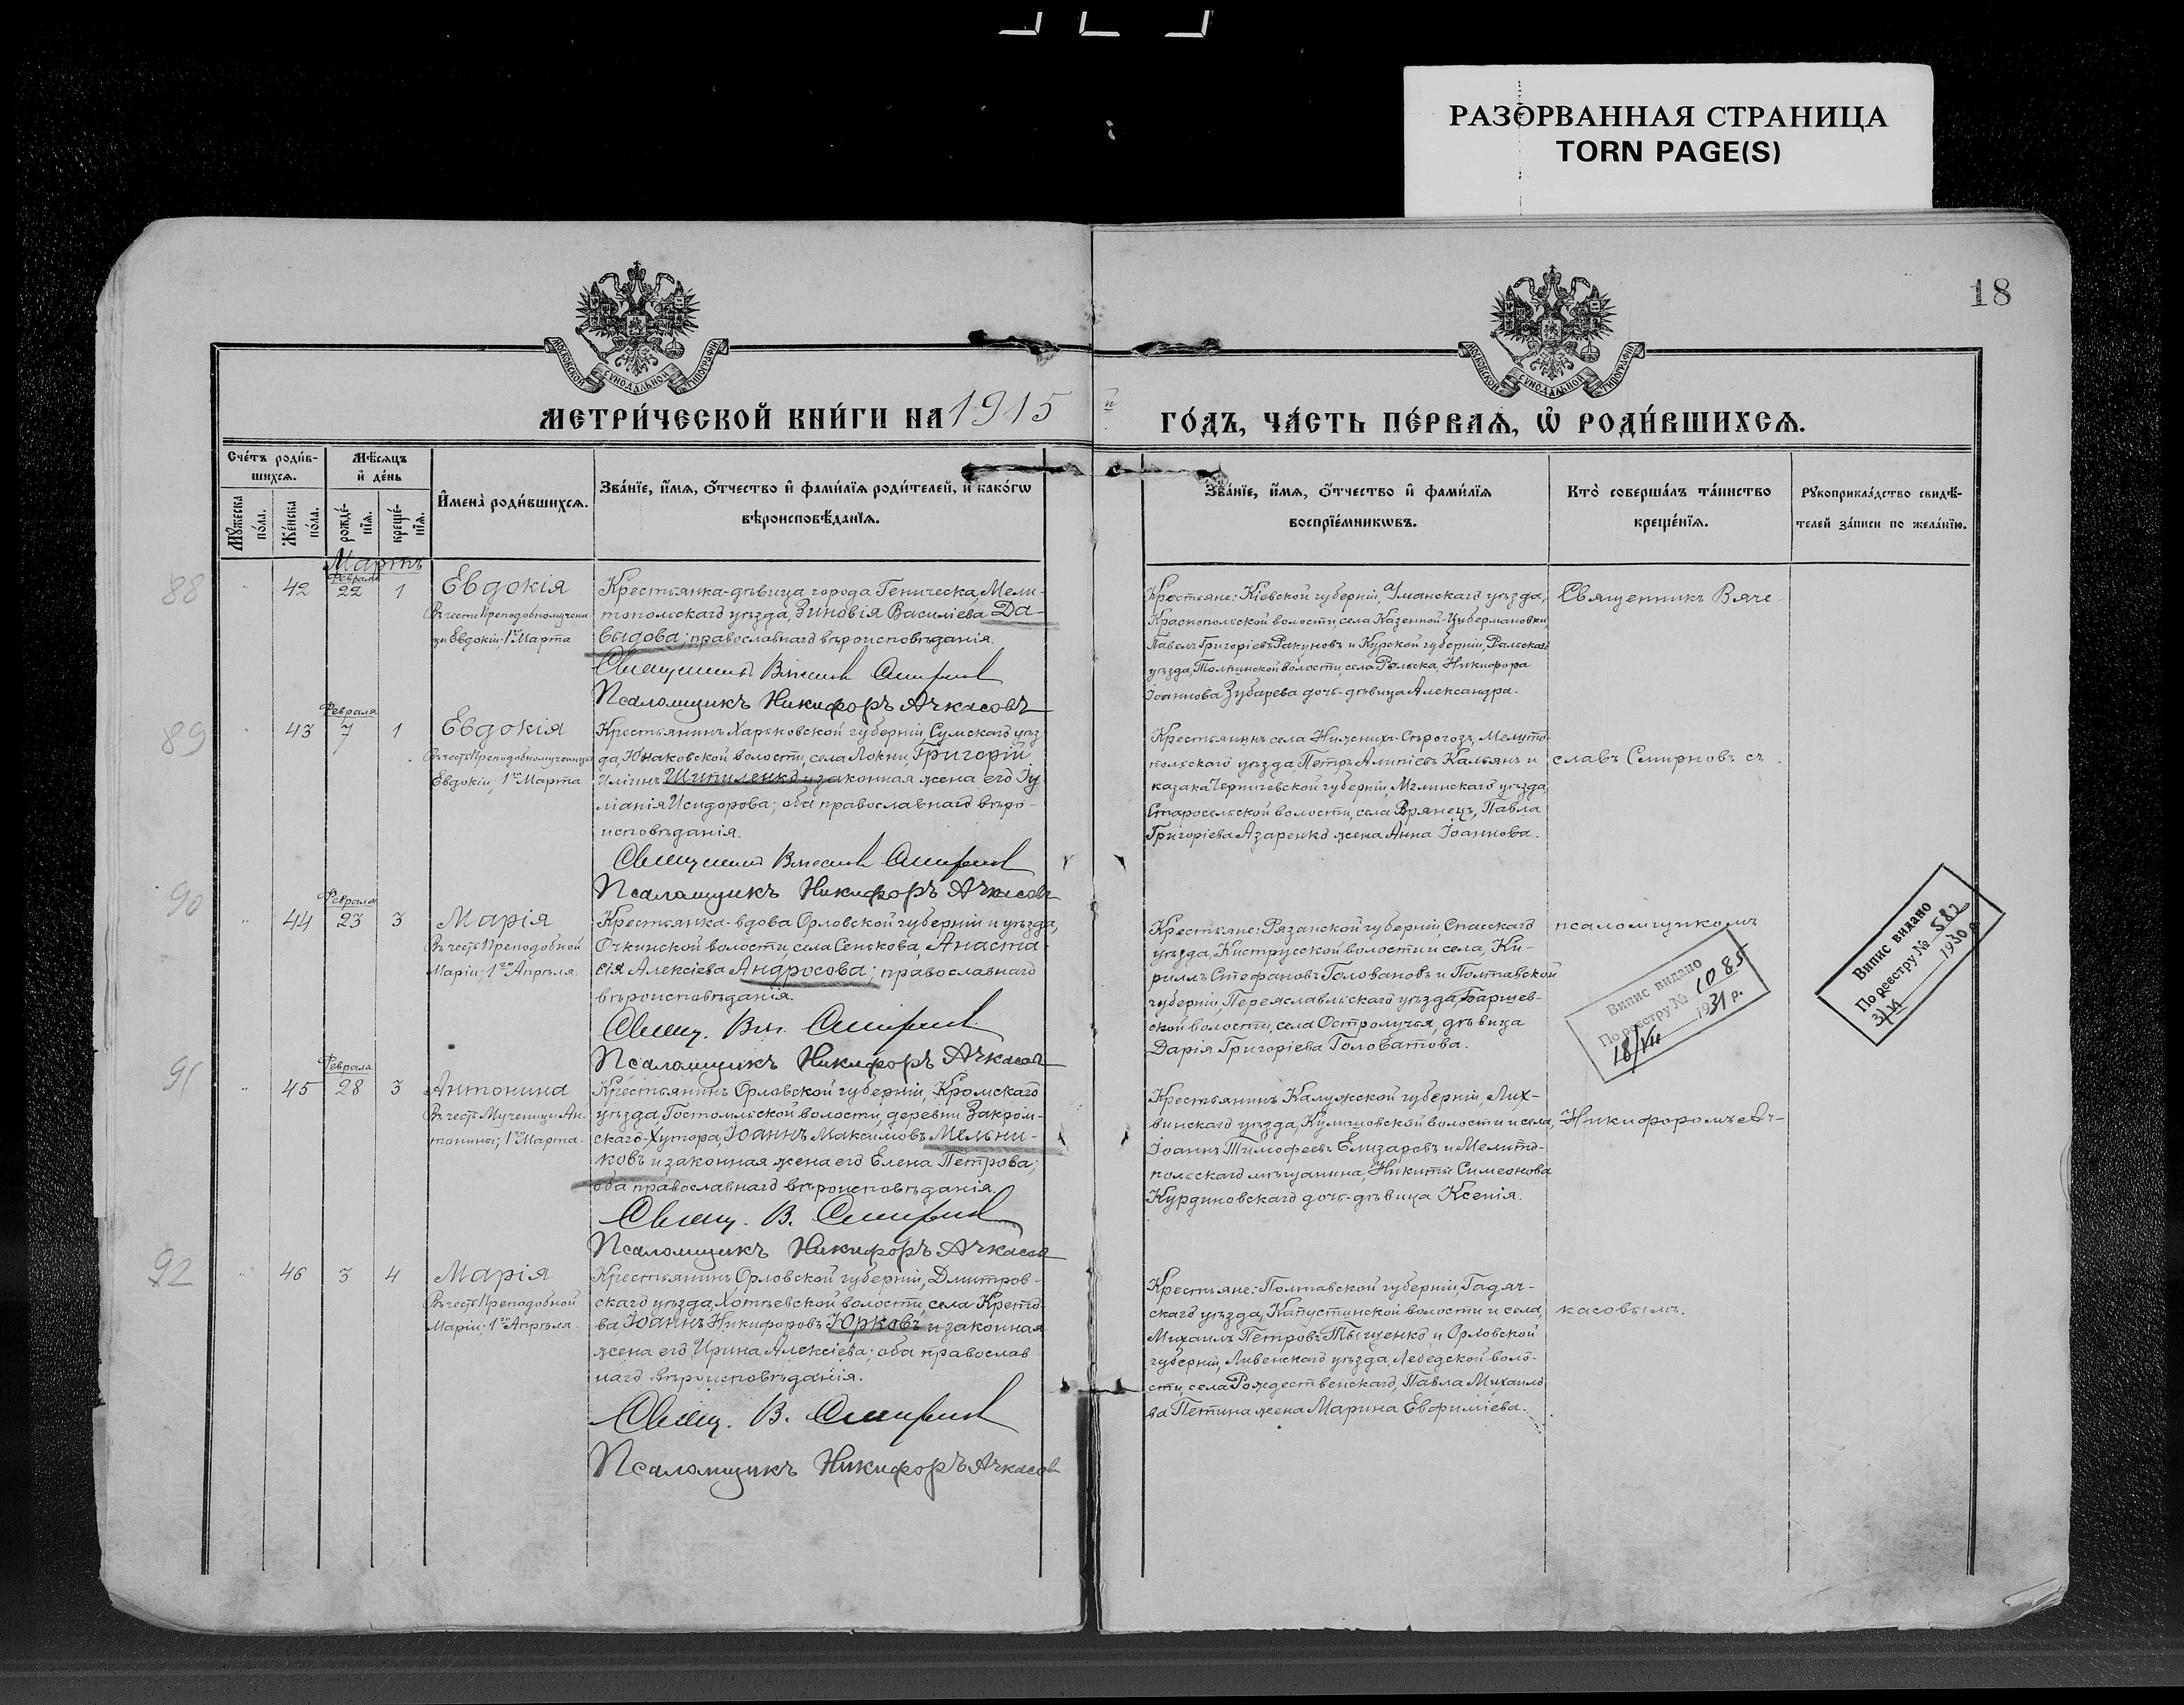 РАЗОРВАННАЯ СТРАНИЦА
TORN PAGE(S)
18
МОСКОВСКОЙ СУНОДАЛЬНОЙ ТИПОГРАФІИ
МОСКОВСКОЙ СУНОДАЛЬНОЙ ТИПОГРАФІИ
МЕТРИ́ЧЕСКОЙ КНИ́ГИ НА 1915
ГО́ДЪ, ЧА́СТЬ ПЕ́РВАѦ, Ѡ҆ РОДИ́ВШИХСѦ.
Сче́тъ роди́в-
шихсѧ.
Мѣ́сѧцъ
и҆ де́нь
Мꙋ́жеска
по́ла.
Же́нска
по́ла.
рожде́-
нїѧ.
креще́-
нїѧ.
И҆мена̀ роди́вшихсѧ.
Зва́нїе, и҆́мѧ, ѻ҆́тчество и҆ фами́лїѧ роди́телей, и҆ како́гѡ
вѣроисповѣ́данїѧ.
Зва́нїе, и҆́мѧ, ѻ҆́тчество и҆ фами́лїѧ
воспрїе́мникѡвъ.
Кто̀ соверша́лъ та́инство
креще́нїѧ.
Рꙋкоприкла́дство свидѣ́-
телей за́писи по жела́нїю.
Мартъ
88
42
Февраля
22
1
Евдокія
Въ честь Преподобномучени-
цы Евдокіи; 1го Марта
Крестьянка-дѣвица города Геническа, Мели-
топольскаго уѣзда, Зиновія Василіева Да-
выдова; православнаго вѣроисповѣданія.
Священникъ Вячеславъ Смирновъ
Псаломщикъ Никифоръ Ачкасовъ
Крестьяне: Кіевской губерніи, Уманскаго уѣзда,
Краснопольской волости, села Казенной-Цыбермановки,
Павелъ Григоріевъ Ракуновъ и Курской губерніи, Рыльскаго
уѣзда, Толпинской волости, села Рыльска, Никифора
Іоаннова Зубарева дочь-дѣвица Александра.
Священникъ Вяче-
89
43
Февраля
7
1
Евдокія
Въ честь Преподобномученицы
Евдокіи; 1го Марта
Крестьянинъ Харьковской губерніи, Сумскаго уѣз
да, Юнаковской волости, села Локни, Григорій
Иліинъ Шипиленко и законная жена его Іу
ліанія Исидорова; оба православнаго вѣро-
исповѣданія.
Священникъ Вячеславъ Смирновъ
Псаломщикъ Никифоръ Ачкасовъ
Крестьянинъ села Нижнихъ-Сѣрогозъ, Мелито-
польскаго уѣзда, Петръ Алипіевъ Кальянъ и
казака Черниговской губерніи, Мглинскаго уѣзда,
Старосельской волости, села Врянецъ, Павла
Григоріева Азаренко жена Анна Іоаннова.
славъ Смирновъ съ
90
44
Февраля
23
3
Марія
Въ честь Преподобной
Маріи; 1го Апрѣля.
Крестьянка-вдова Орловской губерніи и уѣзда,
Очкинской волости, села Сенькова, Анаста-
сія Алексіева Андросова; православнаго
вѣроисповѣданія.
Свящ. Вяч. Смирновъ
Псаломщикъ Никифоръ Ачкасовъ
Крестьяне: Рязанской губерніи, Спасскаго
уѣзда, Киструсской волости и села, Ки-
риллъ Стефановъ Головановъ и Полтавской
губерніи, Переяславльскаго уѣзда, Барышев-
ской волости, села Остролучья, дѣвица
Дарія Григоріева Головатова.
псаломщикомъ
Випис видано
По реестру № 1085
18/VII 1931 р.
Випис видано
По реестру № 582
1930 р.
91
45
Февраля
28
3
Антонина
Въ честь Мученицы Ан-
тонины; 1го Марта.
Крестьянинъ Орловской губерніи, Кромскаго
уѣзда, Гостомльской волости, деревни Закром-
скаго-Хутора, Іоаннъ Максимовъ Мельни-
ковъ и законная жена его Елена Петрова;
оба православнаго вѣроисповѣданія.
Свящ. В. Смирновъ
Псаломщикъ Никифоръ Ачкасовъ
Крестьянинъ Калужской губерніи, Лих-
винскаго уѣзда, Кулешовской волости и села,
Іоаннъ Тимофеевъ Елизаровъ и Мелито-
польскаго мѣщанина, Никиты Симеонова
Курдиновскаго дочь-дѣвица Ксенія.
Никифоромъ Ач-
92
46
3
4
Марія
Въ честь Преподобной
Маріи; 1го Апрѣля.
Крестьянинъ Орловской губерніи, Дмитров-
скаго уѣзда, Хотѣевской волости, села Крето-
ва Іоаннъ Никифоровъ Юрковъ и законная
жена его Ирина Алексіева; оба православ-
наго вѣроисповѣданія.
Свящ. В. Смирновъ
Псаломщикъ Никифоръ Ачкасовъ
Крестьяне: Полтавской губерніи, Гадяч-
скаго уѣзда, Капустинской волости и села,
Михаилъ Петровъ Тыщенко и Орловской
губерніи, Ливенскаго уѣзда, Лебедской воло-
сти, села Рождественскаго, Павла Михаило-
ва Петина жена Марина Евфиміева.
касовымъ.